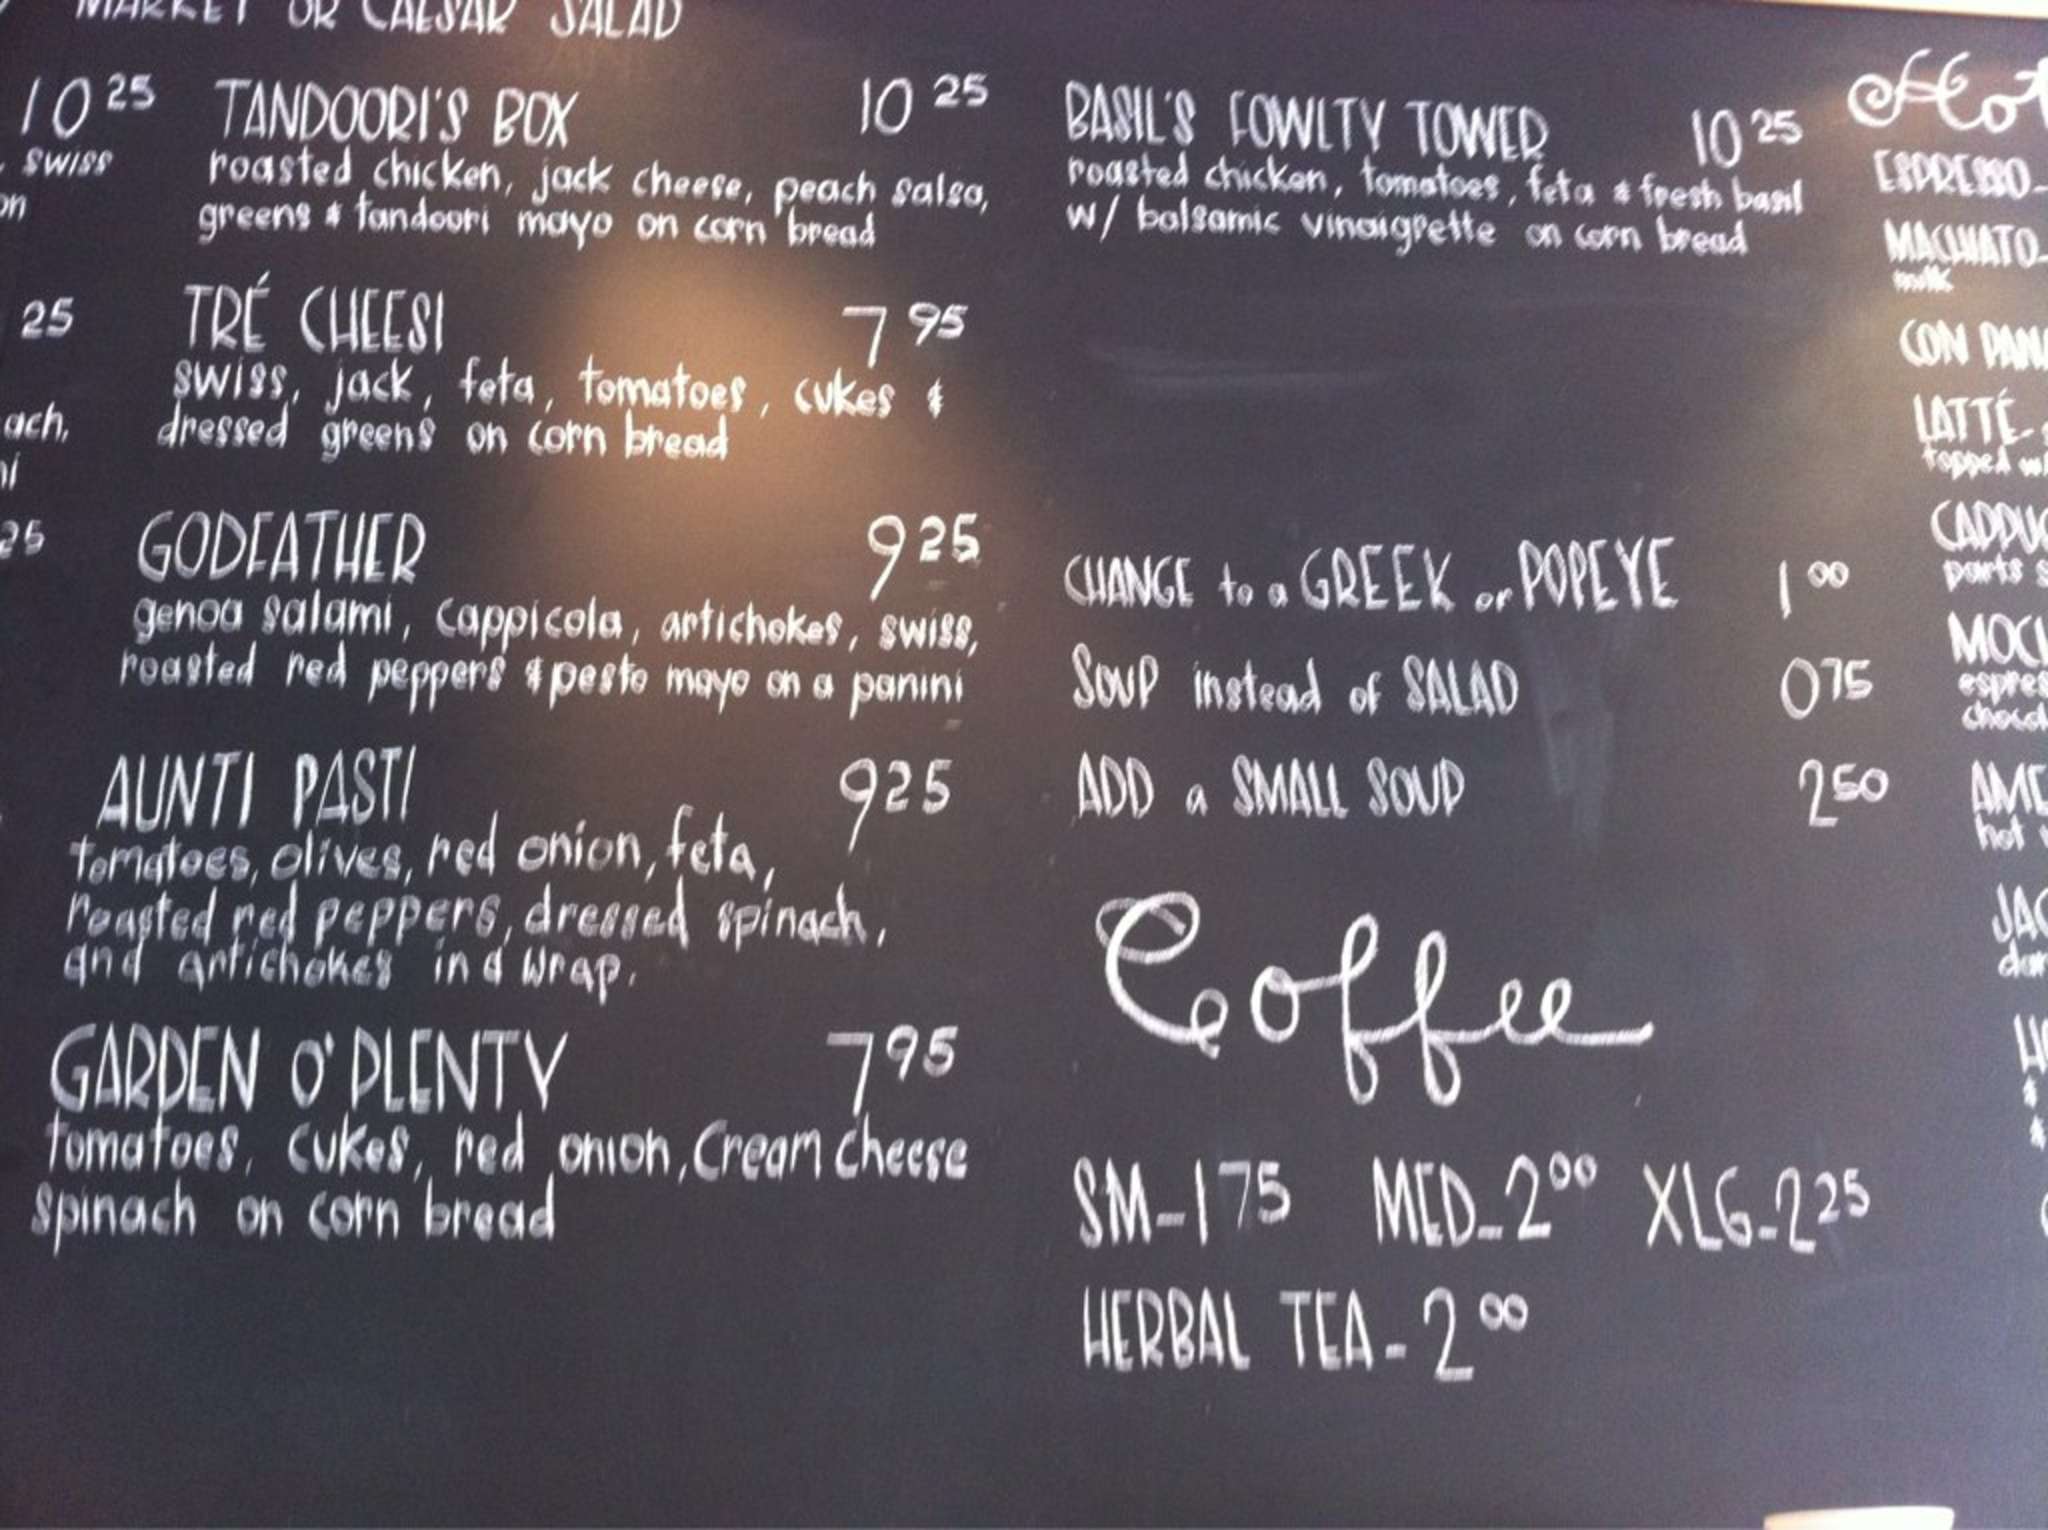 MARKET OR CAESAR SALAD
10 25
swiss
25
ach,
25
TANDOORI'S BOX 10 25
roasted chicken, jack cheese, peach salsa,
greens & tandoori mayo on corn bread
TRÉ CHEESI 7 95
swiss, jack, feta, tomatoes, cukes &
dressed greens on corn bread
GODFATHER 9 25
genoa salami, cappicola, artichokes, swiss,
roasted red peppers & pesto mayo on a panini
AUNTI PASTI 9 25
tomatoes, olives, red onion, feta,
roasted red peppers, dressed spinach,
and artichokes in a wrap.
GARDEN O'PLENTY 7 95
tomatoes, cukes, red onion, cream cheese
spinach on corn bread
BASIL'S FOWLTY TOWER 10 25
roasted chicken, tomatoes, feta & fresh basil
w/ balsamic vinaigrette on corn bread
CHANGE to a GREEK or POPEYE 1 00
SOUP instead of SALAD 0 75
ADD a SMALL SOUP 2 50
Coffee
SM-1 75 MED-2 00 XLG-2 25
HERBAL TEA-2 00
Hot
ESPRESSO-
MACHIATO-
milk
CON PANA
LATTÉ-
topped w/
CAPPUC
parts s
MOCH
espres
chocol
AME
hot
JAC
dar